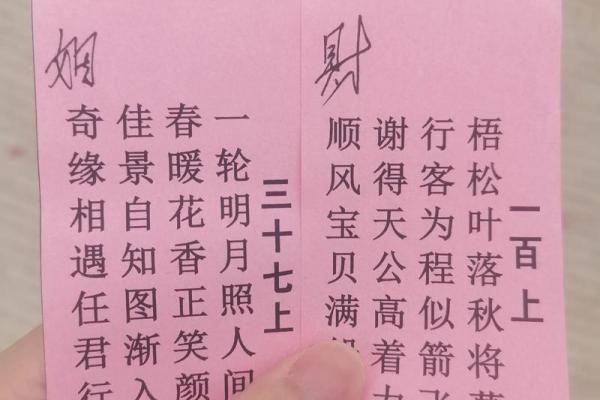 财
一百上
梧松叶落秋将
行客为程似箭飞
谢得天公高着力
顺风宝贝满
姻
三十七上
一轮明月照人间
春暖花香正笑颜
佳景自知图渐入
奇缘相遇任君行